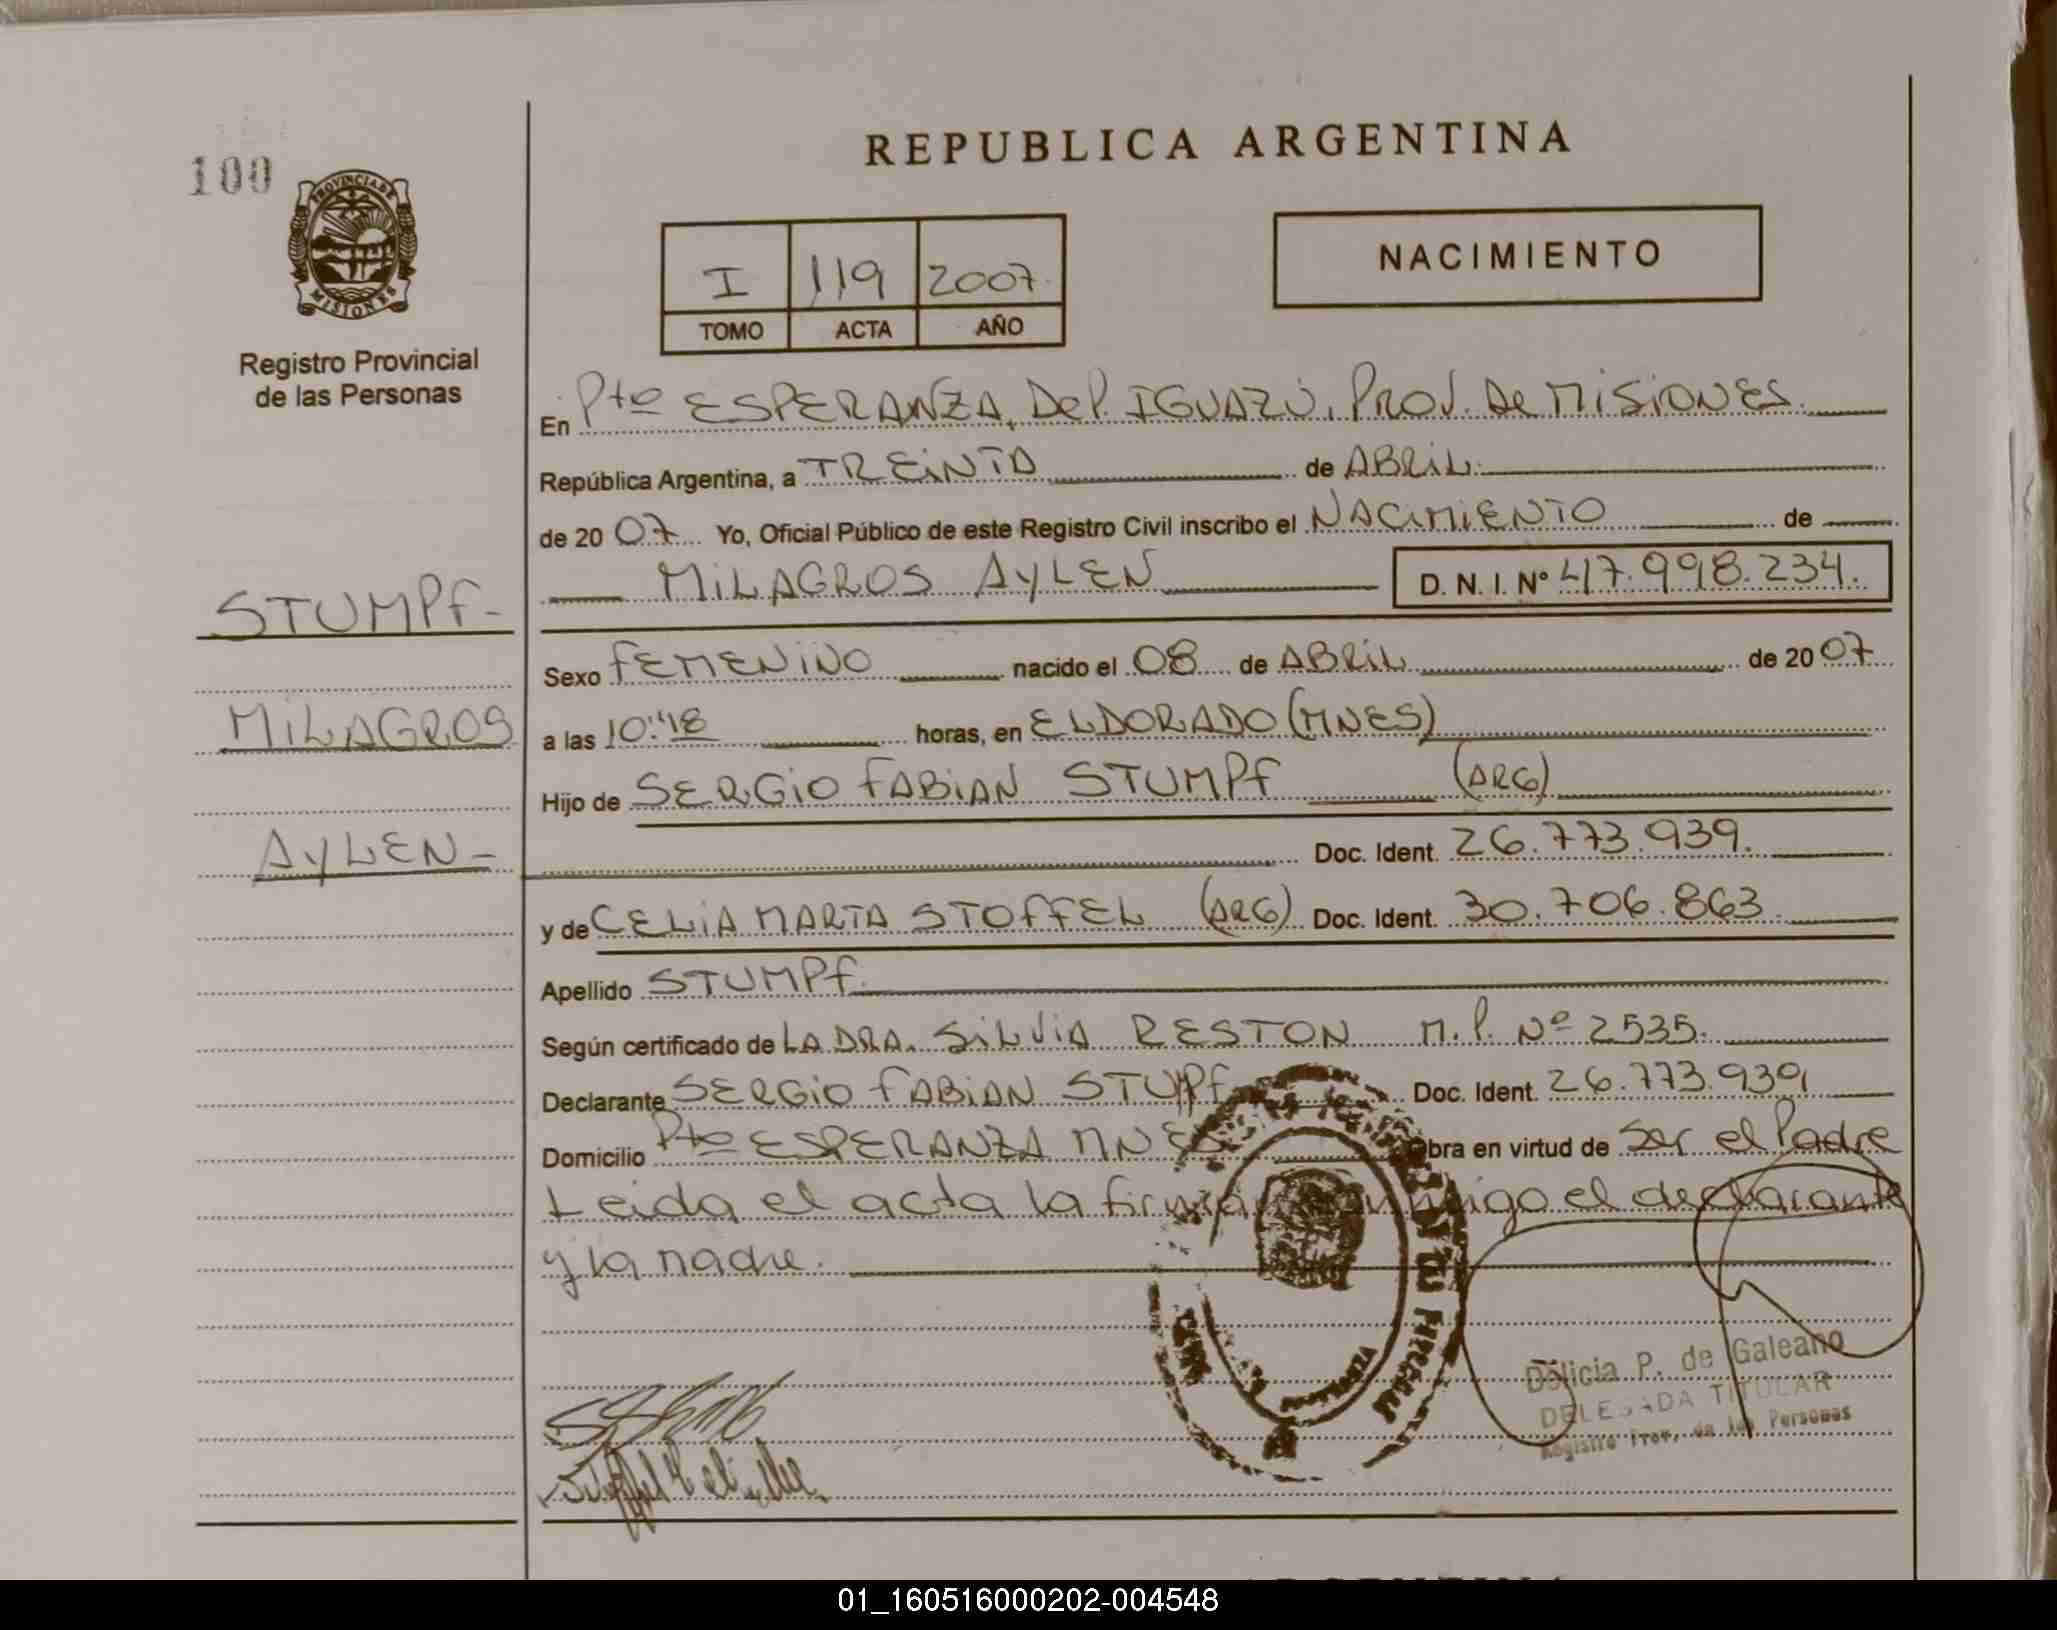 REPUBLICA ARGENTINA
100
PROVINCIA DE
MISIONES
Registro Provincial
de las Personas
I 119 2007.
TOMO ACTA AÑO
NACIMIENTO
En Pto ESPERANZA, Dep. IGUAZÚ, Prov. de MISIONES.
República Argentina, a TREINTA de ABRIL.
de 2007. Yo, Oficial Público de este Registro Civil inscribo el NACIMIENTO de
MILAGROS AYLEN D. N. I. N° 47.998.234.
STUMPF-
MILAGROS
AYLEN-
Sexo FEMENINO nacido el 08 de ABRIL de 2007
a las 10:"18 horas, en ELDORADO (MNES)
Hijo de SERGIO FABIAN STUMPF (ARG)
Doc. Ident. 26.773.939.
y de CELIA MARTA STOFFEL (ARG) Doc. Ident. 30.706.863
Apellido STUMPF.
Según certificado de LA DRA. SILVIA RESTON M.P. Nº 2535.
Declarante SERGIO FABIAN STUPF Doc. Ident. 26.773.939
Domicilio Pto ESPERANZA MNES Obra en virtud de Ser el Padre
Leida el acta la firman conmigo el declarante
y la madre.
Delicia P. de Galeano
DELEGADA TITULAR
Registro Prov. de las Personas
01_160516000202-004548